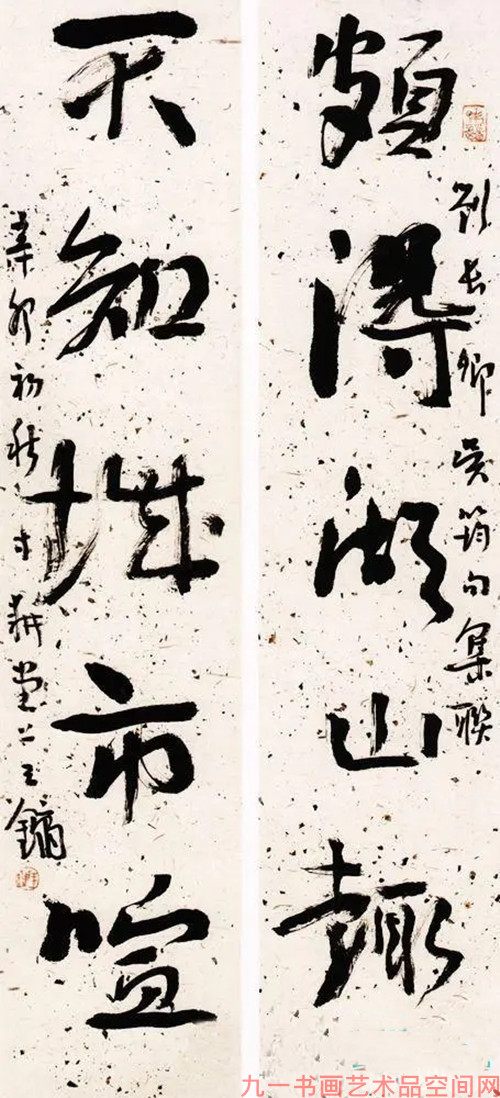 頗得湖山趣
劉長卿吳筠句集聯
不知城市喧
辛卯初秋寸耕堂上王鏞
九一书画艺术品空间网